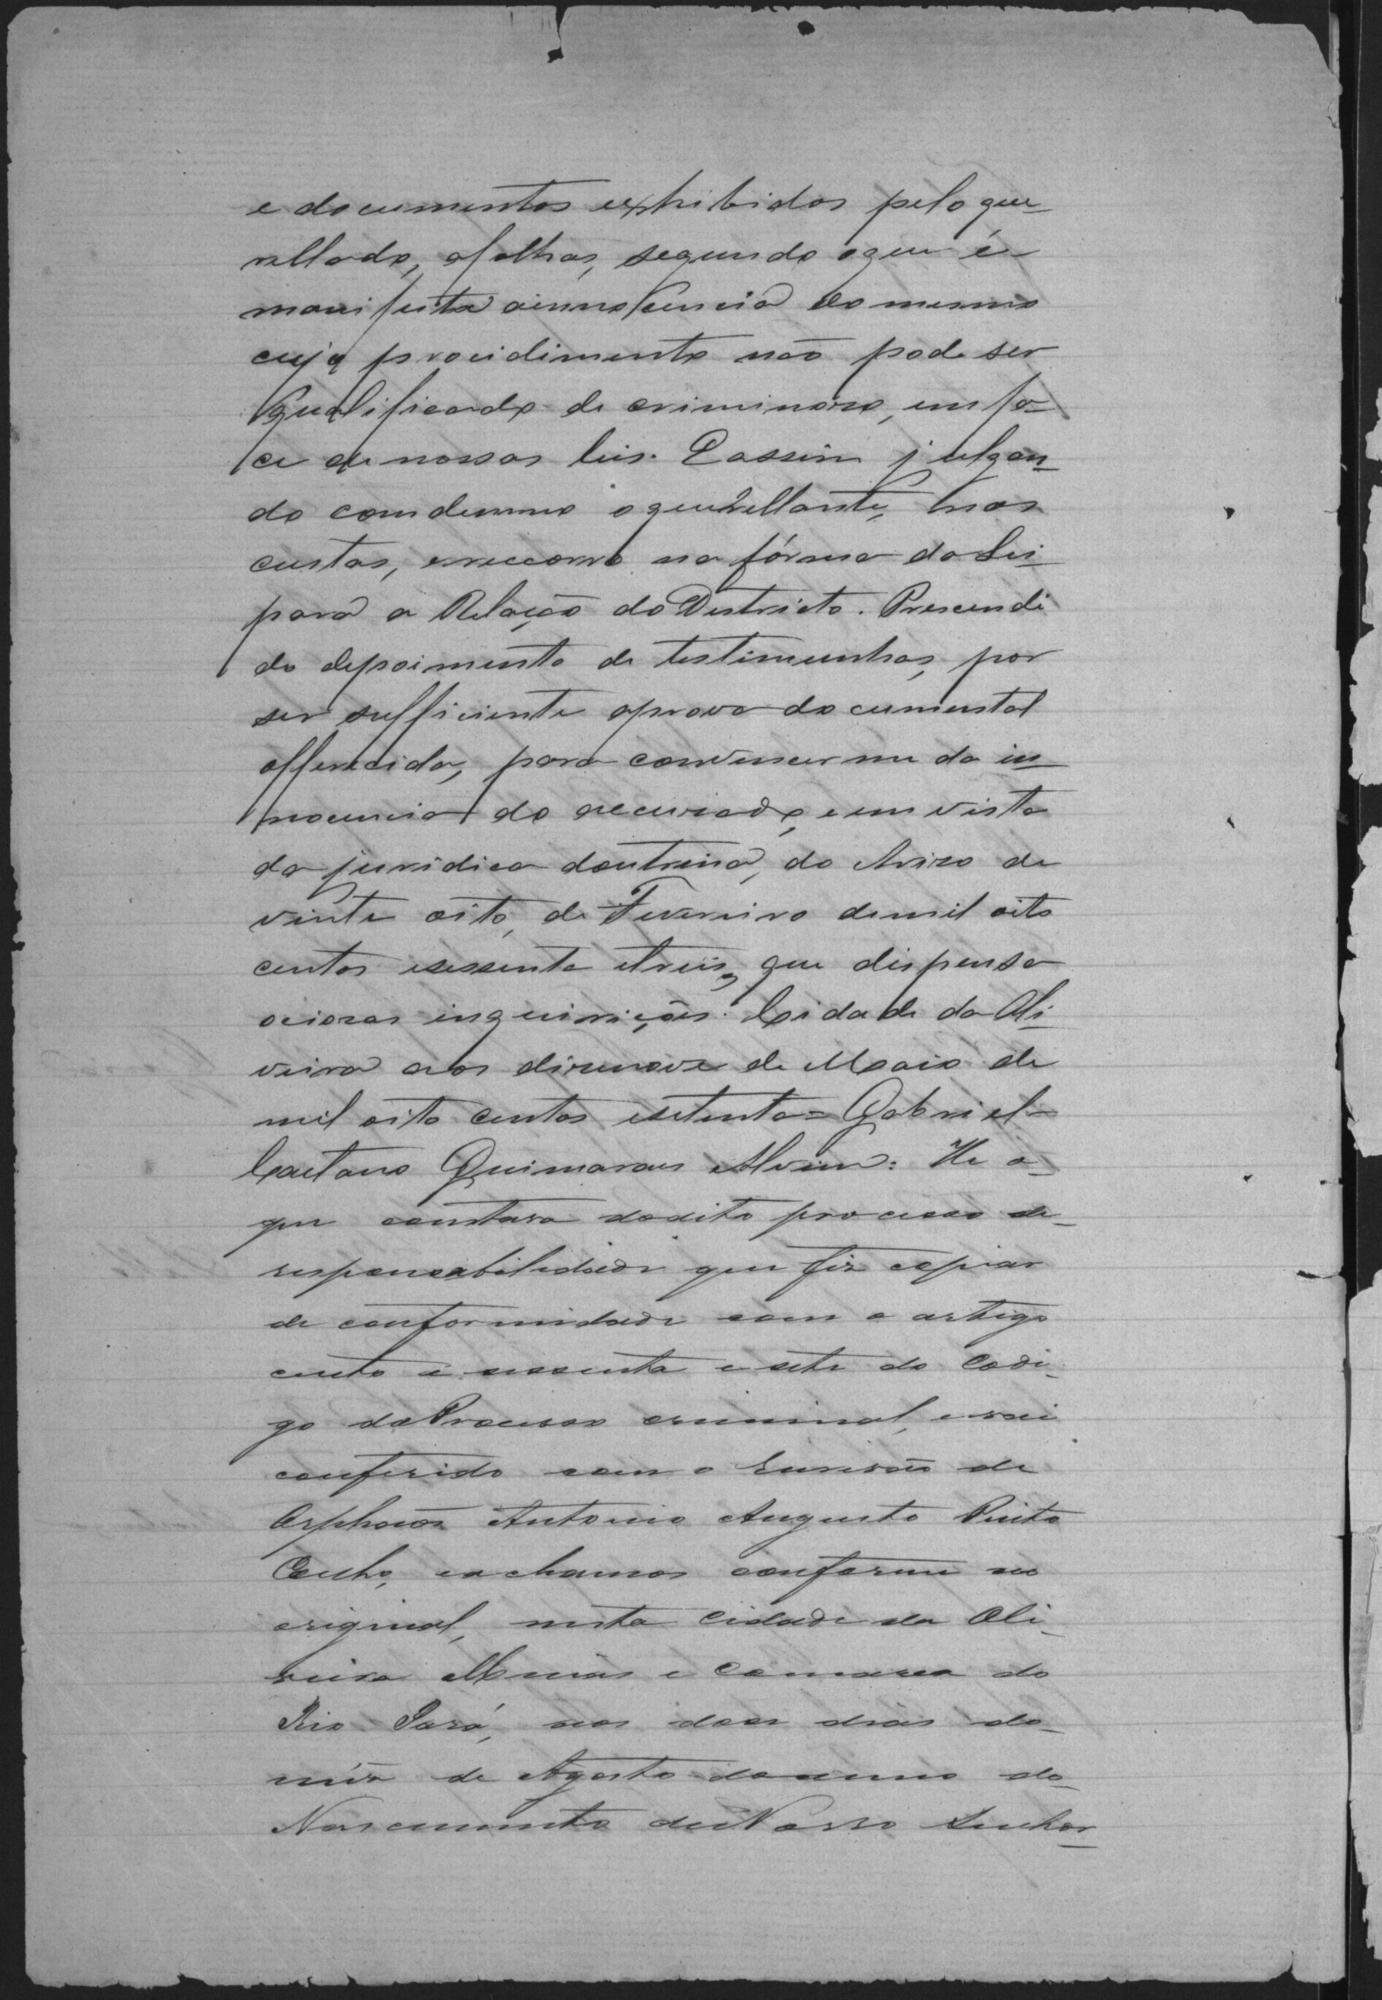 e documentos exhibidos pelo que-
rellado, a folhas, segundo o que é
manifesta a innocencia do mesmo
cujo procidimento não pode ser
qualificado de criminoso, em fa-
ce de nossas leis. E assim julgan-
do condemno o querellante, nas
custas, e recorro na fórma da Lei
para a Relação do Destricto. Prescendi
do depoimento de testimunhas, por
ser sufficiente a prova documental
offerecida, para convencer me da in-
nocencia do accusado, e em vista
da juridica doutrina, do Avizo de
vinte oito, de Fevereiro de mil oito
centos e sessenta e treis, que dispensa
ociozas inquirições. Cidade da Oli-
veira aos dizenove de Maio de
mil oito centos e setenta = Gabriel
Caetano Guimaraes Alvim: He o
que constava do dito processo de
responsabilidade que fiz copiar
de conformidade com o artigo
cento e sessenta e sete do Codi-
go do Processo criminal, e vai
conferido com o Escrivão de
Orphaos Antonio Augusto Pinto
Coelho, e achamos conforme ao
original, nesta cidade da Oli-
veira Minas e Comarca do
Rio Pará, aos doos dias do
mês de Agosto do anno do
Nascimento de Nosso Senhor